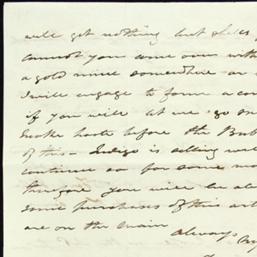 will get nothing but
cannot you come over with
a gold mine somewhere or
I will engage to form a com
if you will let me go on
make haste before the Bub
of this. Indigo is selling wel
continue so for some mo
therefore you will be ab
some purchases of this art
are on the main
always my